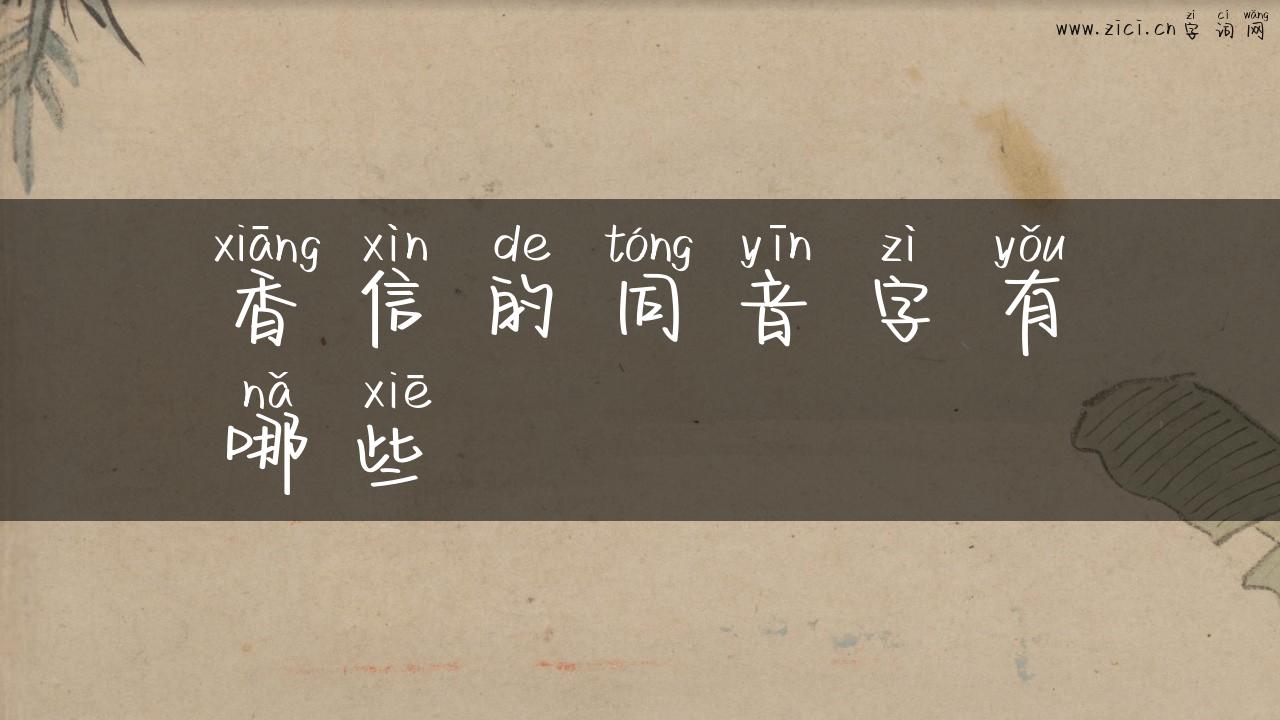 zì cí wǎng
www.zici.cn 字词网
xiāng xìn de tóng yīn zì yǒu
香信的同音字有
nǎ xiē
哪些